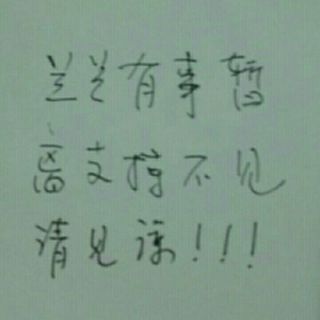 兰兰有事暂
离支撑不见
请见谅!!!